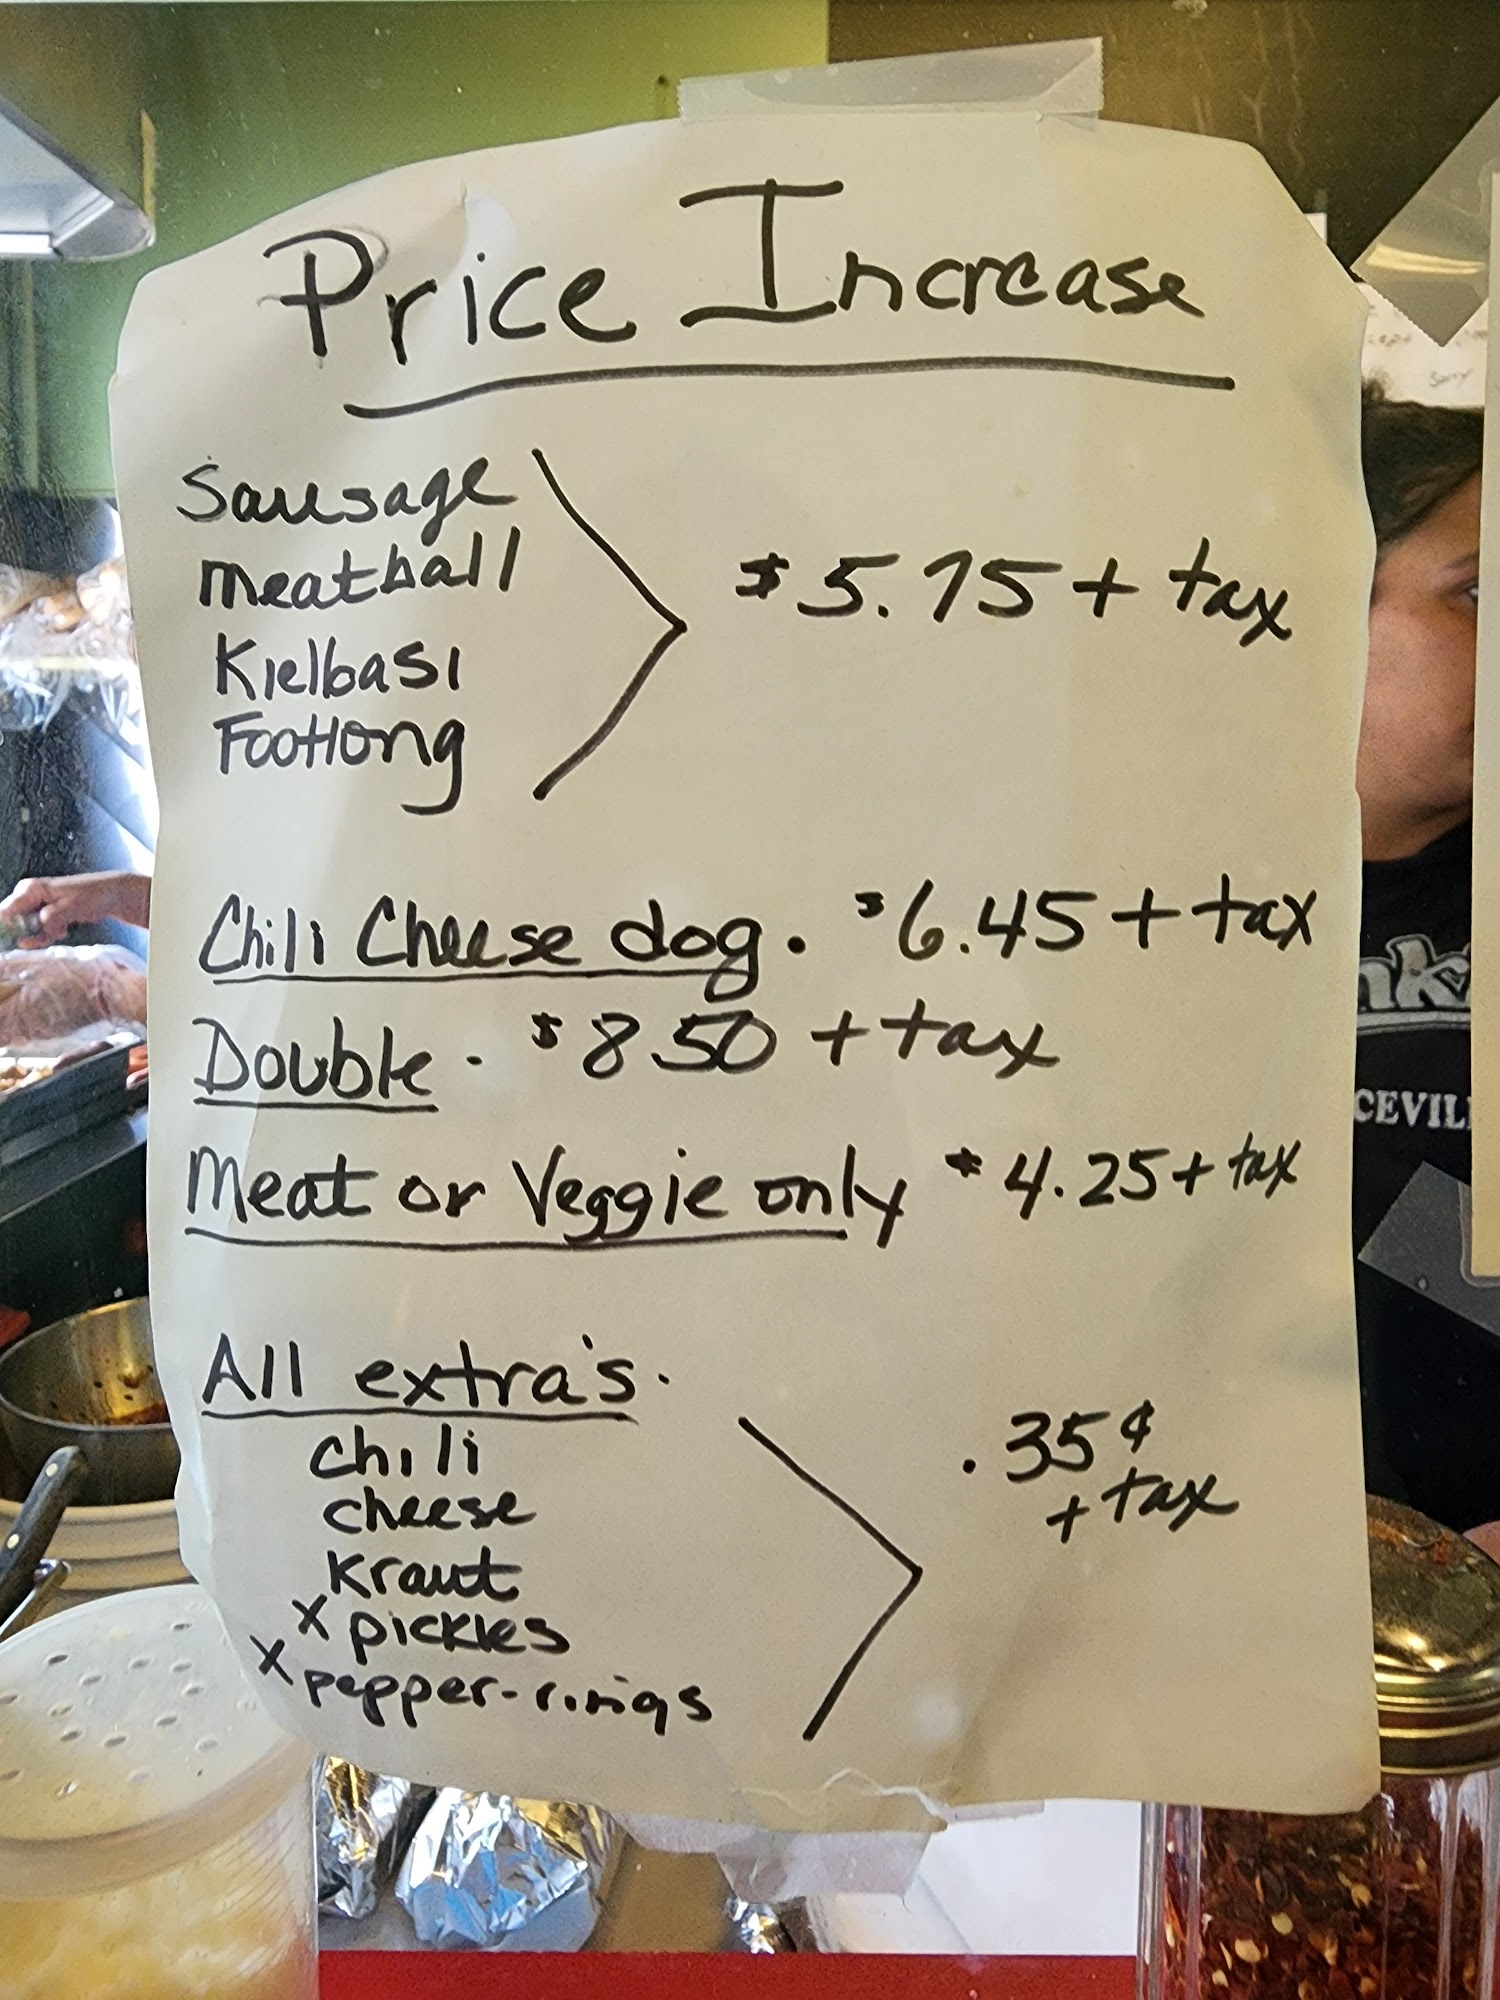 Price Increase
Sausage
meatball
Kielbasi
Footlong
$5.75 + tax
Chili Cheese dog. $6.45 + tax
Double. $8.50 + tax
Meat or Veggie only $4.25 + tax
All extra's.
chili
cheese
Kraut
x pickles
x pepper-rings
.35¢
+ tax
Sorry
CEVIL